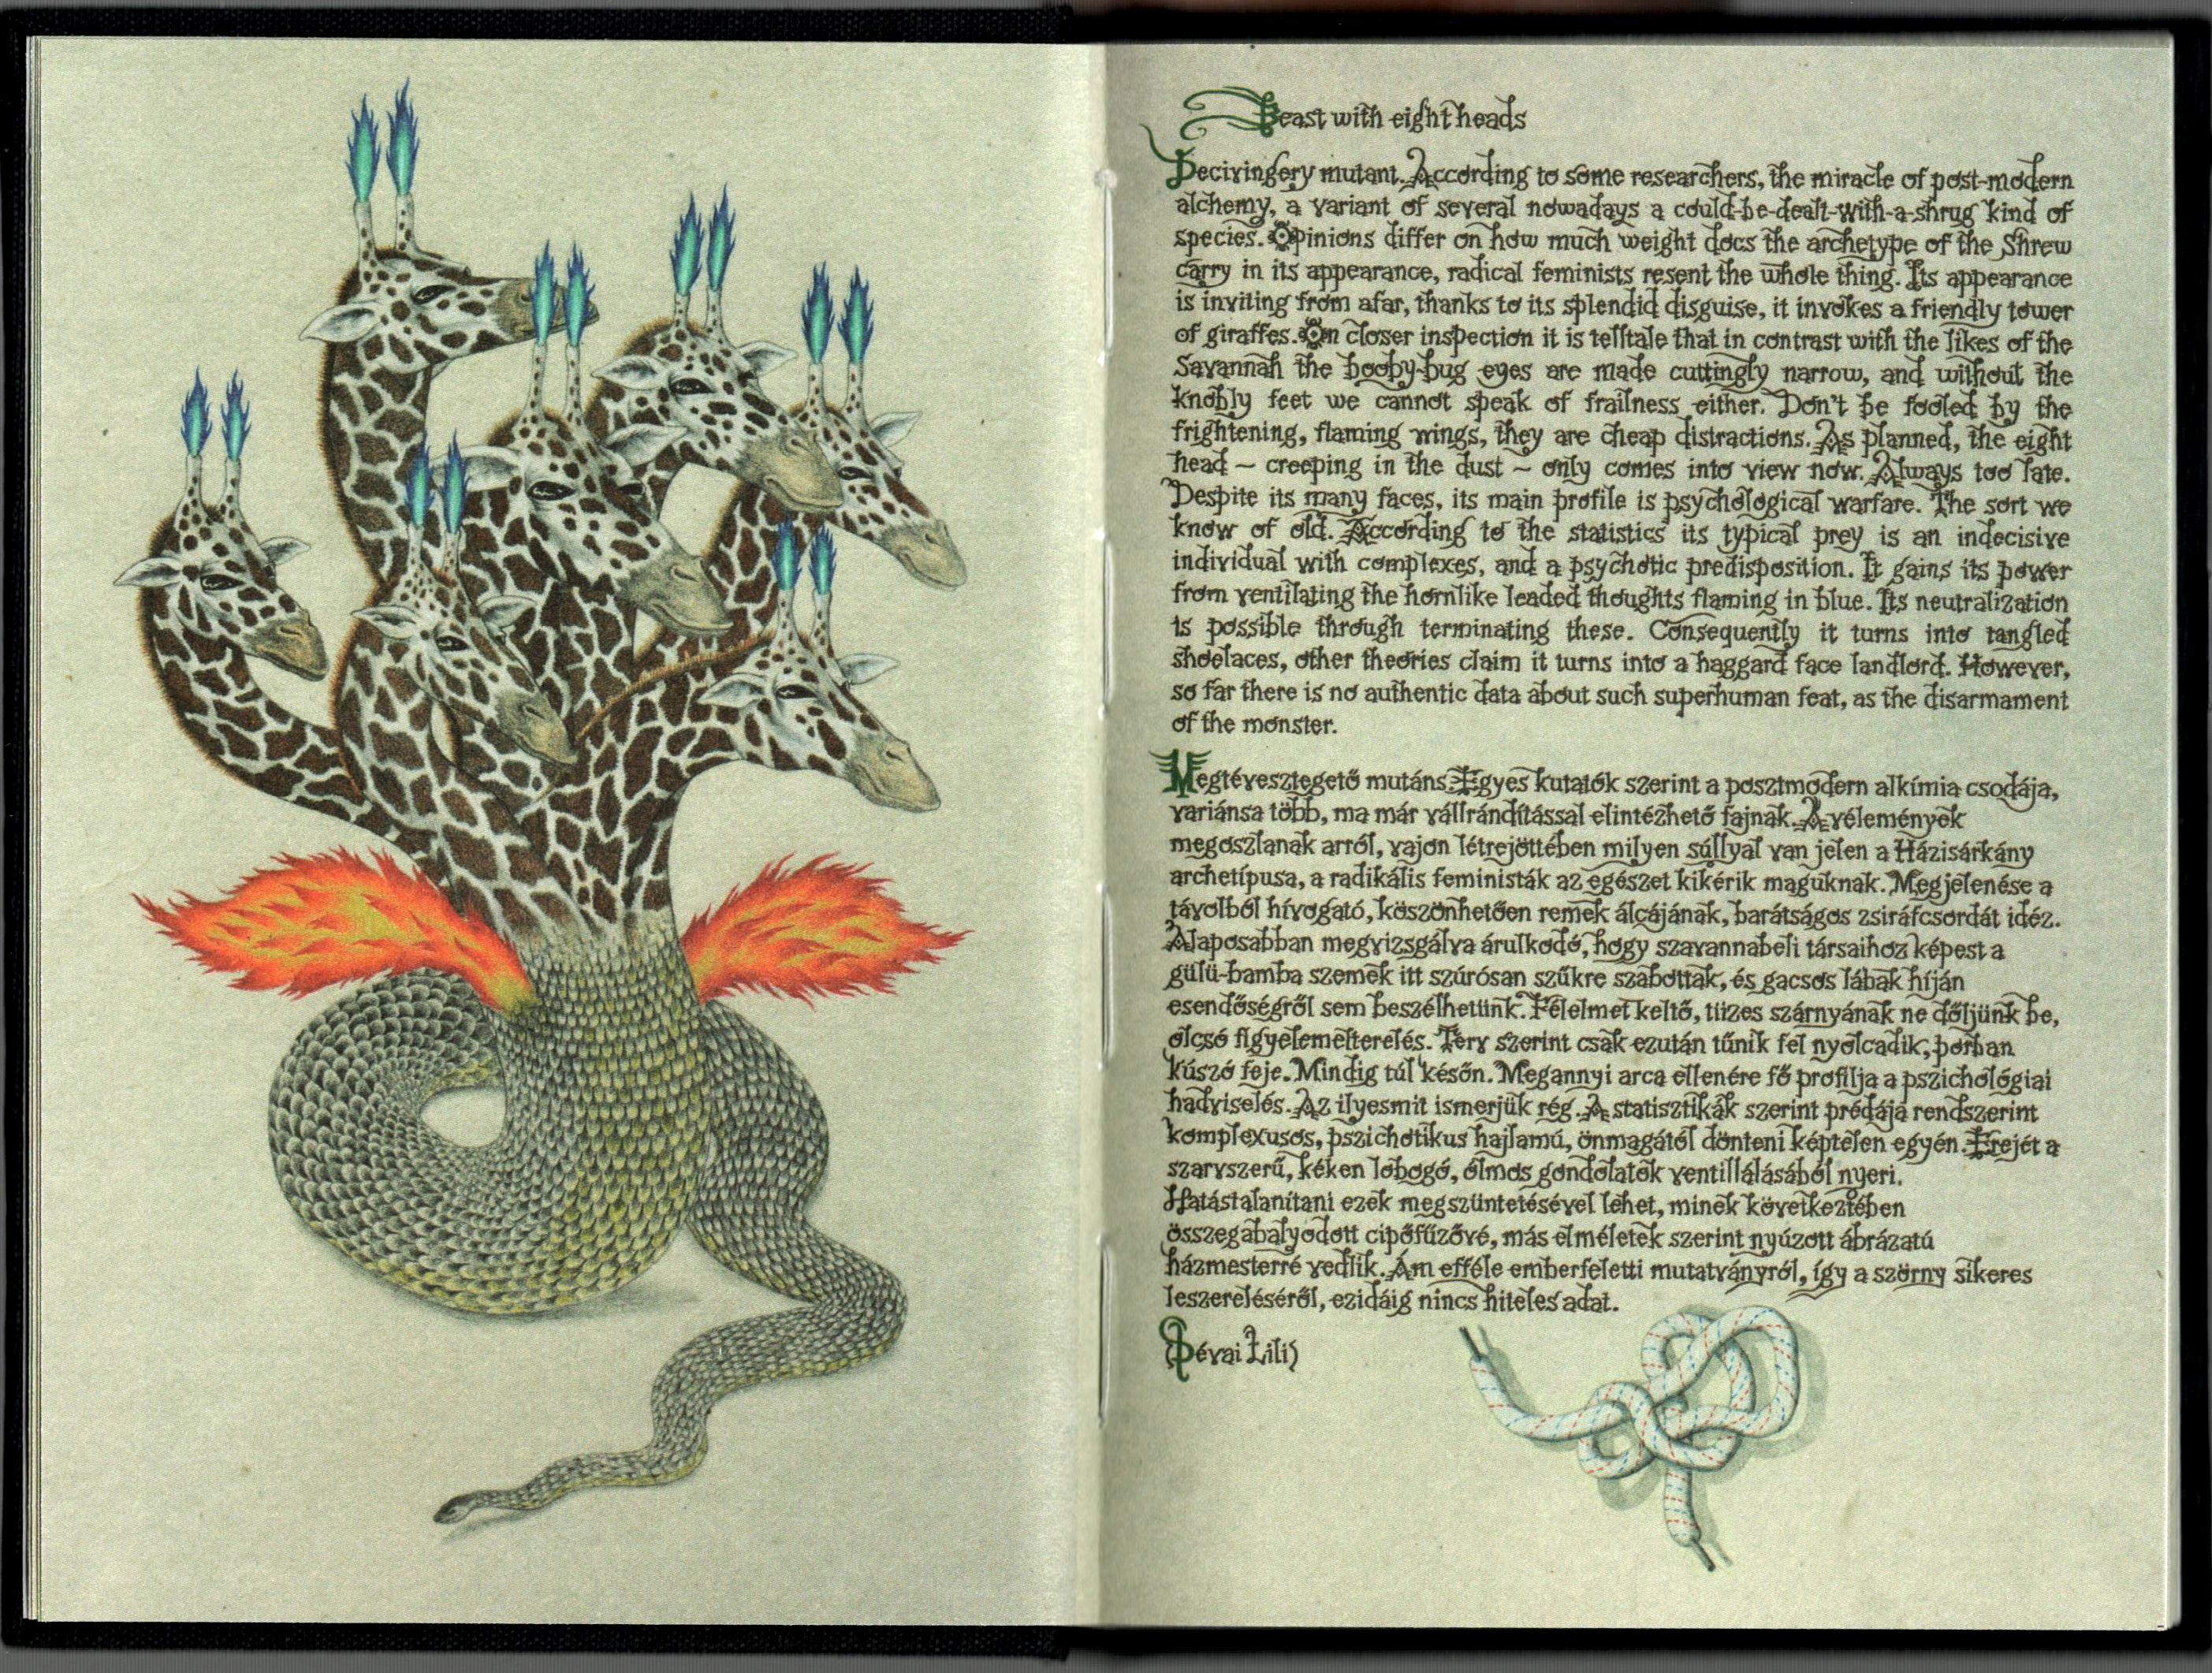 Beast with eight heads
Decivingery mutant. According to some researchers, the miracle of post-modern
alchemy, a variant of several nowadays a could-be-dealt-with-a-shrug kind of
species. Opinions differ on how much weight does the archetype of the Shrew
carry in its appearance, radical feminists resent the whole thing. Its appearance
is inviting from afar, thanks to its splendid disguise, it invokes a friendly tower
of giraffes. On closer inspection it is telltale that in contrast with the likes of the
Savannah the booby-bug eyes are made cuttingly narrow, and without the
knobly feet we cannot speak of frailness either. Don't be fooled by the
frightening, flaming wings, they are cheap distractions. As planned, the eight
head ~ creeping in the dust ~ only comes into view now. Always too late.
Despite its many faces, its main profile is psychological warfare. The sort we
know of old. According to the statistics its typical prey is an indecisive
individual with complexes, and a psychotic predisposition. It gains its power
from ventilating the hornlike leaded thoughts flaming in blue. Its neutralization
is possible through terminating these. Consequently it turns into tangled
shoelaces, other theories claim it turns into a haggard face landlord. However,
so far there is no authentic data about such superhuman feat, as the disarmament
of the monster.
Megtévesztegető mutáns. Egyes kutatók szerint a posztmodern alkímia csodája,
variánsa több, ma már vállrándítással elintézhető fajnak. A vélemények
megoszlanak arról, vajon létrejöttében milyen súllyal van jelen a Házisárkány
archetípusa, a radikális feministák az egészet kikérik maguknak. Megjelenése a
távolból hívogató, köszönhetően remek álcájának, barátságos zsiráfcsordát idéz.
Alaposabban megvizsgálva árulkodó, hogy szavannabeli társaihoz képest a
gülü-bamba szemek itt szúrósan szűkre szabottak, és gacsos lábak híján
esendőségről sem beszélhetünk. Félelmet keltő, tüzes szárnyának ne dőljünk be,
olcsó figyelemelterelés. Terv szerint csak ezután tűnik fel nyolcadik, porban
kúszó feje. Mindig túl későn. Megannyi arca ellenére fő profilja a pszichológiai
hadviselés. Az ilyesmit ismerjük rég. A statisztikák szerint prédája rendszerint
komplexusos, pszichotikus hajlamú, önmagától dönteni képtelen egyén. Erejét a
szarvszerű, kéken lobogó, ólmos gondolatok ventillálásából nyeri.
Hatástalanítani ezek megszüntetésével lehet, minek következtében
összegabalyodott cipőfűzővé, más elméletek szerint nyúzott ábrázatú
házmesterré vedlik. Ám efféle emberfeletti mutatványról, így a szörny sikeres
leszereléséről, ezidáig nincs hiteles adat.
(Dévai Lili)